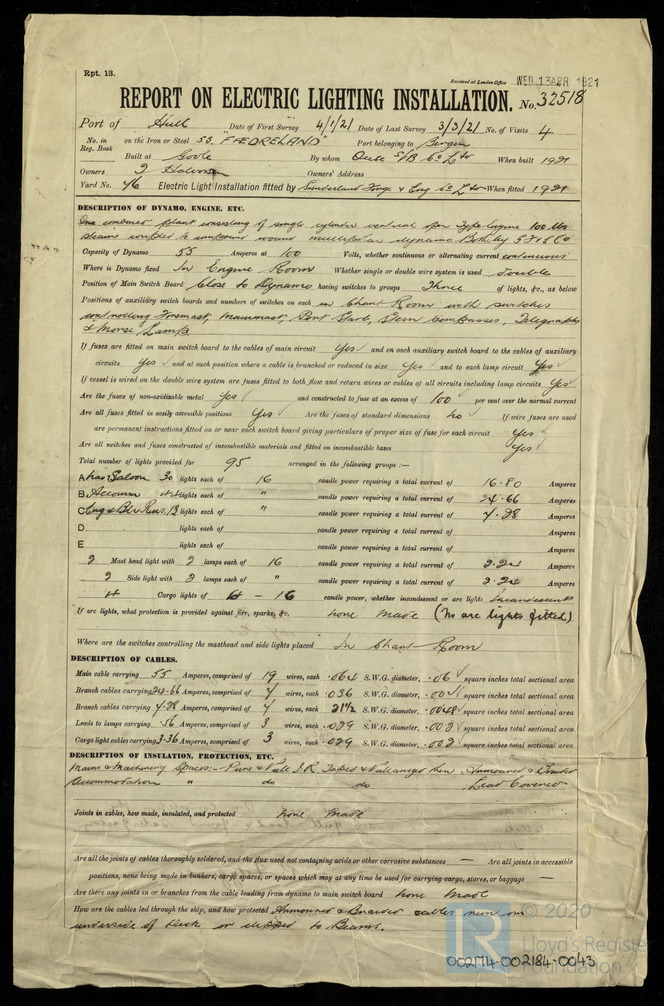 Rpt. 13.
Received at London Office WED 13 APR 1921
REPORT ON ELECTRIC LIGHTING INSTALLATION. No. 32518
Port of Hull Date of First Survey 4/1/21 Date of Last Survey 3/3/21 No. of Visits 4
No. in Reg. Book on the Iron or Steel S.S. "FÆDRELAND" Port belonging to Bergen
Built at Goole By whom S/B Co Ltd When built 1921
Owners Owners' Address
Yard No. 46 Electric Light Installation fitted by Sunderland Forge & Eng Co Ltd When fitted 1921
DESCRIPTION OF DYNAMO, ENGINE, ETC.
One combined plant consisting of single cylinder vertical open type engine 100 lbs
steam coupled to compound wound multipolar dynamo Both by S F & E Co
Capacity of Dynamo 55 Amperes at 100 Volts, whether continuous or alternating current continuous
Where is Dynamo fixed In Engine Room Whether single or double wire system is used double
Position of Main Switch Board Close to Dynamo having switches to groups Three of lights, &c., as below
Positions of auxiliary switch boards and numbers of switches on each in Chart Room with switches
controlling Foremast, Mainmast, Port Starb, Stern Compasses, Telegraphs
& Morse Lamps
If fuses are fitted on main switch board to the cables of main circuit Yes and on each auxiliary switch board to the cables of auxiliary
circuits Yes and at each position where a cable is branched or reduced in size Yes and to each lamp circuit Yes
If vessel is wired on the double wire system are fuses fitted to both flow and return wires or cables of all circuits including lamp circuits Yes
Are the fuses of non-oxidizable metal Yes and constructed to fuse at an excess of 100 per cent over the normal current
Are all fuses fitted in easily accessible positions Yes Are the fuses of standard dimensions no If wire fuses are used
are permanent instructions fitted on or near each switch board giving particulars of proper size of fuse for each circuit Yes
Are all switches and fuses constructed of incombustible materials and fitted on incombustible bases Yes
Total number of lights provided for 95 arranged in the following groups :—
A Nav Saloon 30 lights each of 16 candle power requiring a total current of 16.80 Amperes
B Accomm 44 lights each of " candle power requiring a total current of 24.66 Amperes
C Eng & Blr Rms. 13 lights each of " candle power requiring a total current of 7.28 Amperes
D lights each of candle power requiring a total current of Amperes
E lights each of candle power requiring a total current of Amperes
2 Mast head light with 2 lamps each of 16 candle power requiring a total current of 2.24 Amperes
2 Side light with 2 lamps each of " candle power requiring a total current of 2.24 Amperes
4 Cargo lights of 4 - 16 candle power, whether incandescent or arc lights Incandescent
If arc lights, what protection is provided against fire, sparks, &c. none made (No arc lights fitted)
Where are the switches controlling the masthead and side lights placed In Chart Room
DESCRIPTION OF CABLES.
Main cable carrying 55 Amperes, comprised of 19 wires, each .064 S.W.G. diameter, .06 square inches total sectional area
Branch cables carrying 24.66 Amperes, comprised of 7 wires, each .036 S.W.G. diameter, .007 square inches total sectional area
Branch cables carrying 7.28 Amperes, comprised of 7 wires, each 21½ S.W.G. diameter, .0048 square inches total sectional area
Leads to lamps carrying .56 Amperes, comprised of 3 wires, each .029 S.W.G. diameter, .002 square inches total sectional area
Cargo light cables carrying 3.36 Amperes, comprised of 3 wires, each .029 S.W.G. diameter, .002 square inches total sectional area
DESCRIPTION OF INSULATION, PROTECTION, ETC.
Mains & Machinery Spaces:- Pure & Vulc I.R. Taped & Vulcanized then Armoured & Braided
Accommodation " do do Lead Covered
Joints in cables, how made, insulated, and protected none made
Are all the joints of cables thoroughly soldered, and the flux used not containing acids or other corrosive substances — Are all joints in accessible
positions, none being made in bunkers, cargo spaces, or spaces which may at any time be used for carrying cargo, stores, or baggage —
Are there any joints in or branches from the cable leading from dynamo to main switch board none made
How are the cables led through the ship, and how protected Armoured & Braided cables run on
underside of Deck or clipped to Beams.
© 2020
Lloyd's Register
Foundation
002174-002184-0043